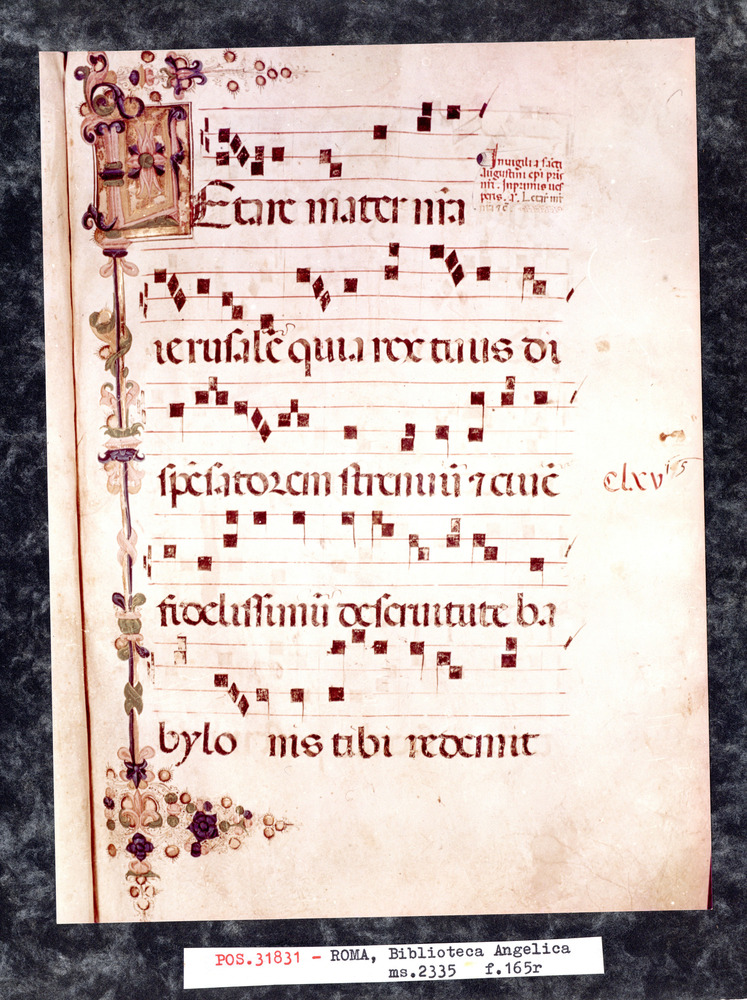 In vigilia sācti
augustini epi pris
nr̄i. Inprimis ues
peris. a. Letar̄ mr̄
LEtare mater nr̄a
ierusalē quia rex tuus di
spēsatorem strenuū ⁊ ciuē
fidelissimū deseruitute ba
clxv
165
bylo nis tibi redemit
POS.31831 - ROMA, Biblioteca Angelica
ms.2335 f.165r